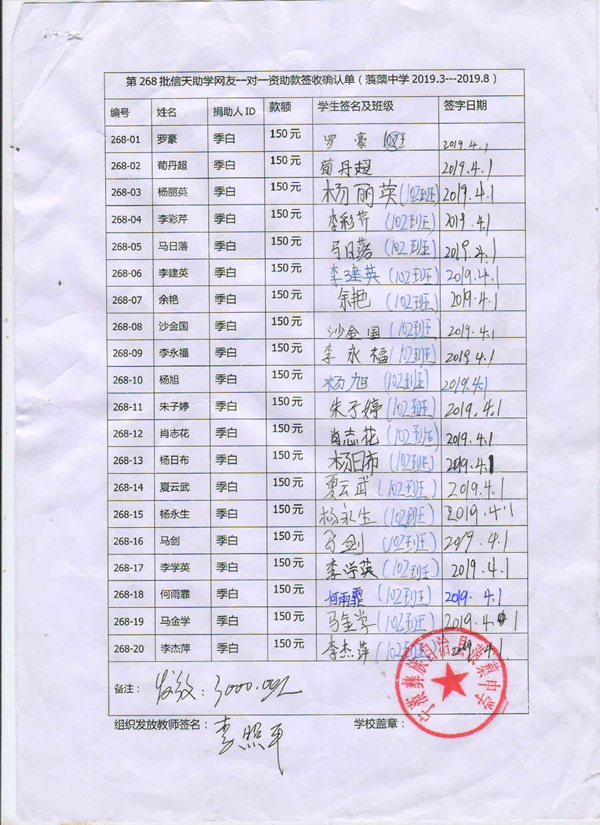 第268批信天助学网友一对一资助款签收确认单（蒗蕖中学2019.3---2019.8）
编号 姓名 捐助人ID 款额 学生签名及班级 签字日期
268-01 罗豪 季白 150元 罗豪 2019.4.1
268-02 荀丹超 季白 150元 荀丹超 2019.4.1
268-03 杨丽英 季白 150元 杨丽英(102班) 2019.4.1
268-04 李彩芹 季白 150元 李彩芹(102班) 2019.4.1
268-05 马日落 季白 150元 马日落(102班) 2019.4.1
268-06 李建英 季白 150元 李建英(102班) 2019.4.1
268-07 余艳 季白 150元 余艳(102班) 2019.4.1
268-08 沙金国 季白 150元 沙金国(102班) 2019.4.1
268-09 李永福 季白 150元 李永福(102班) 2019.4.1
268-10 杨旭 季白 150元 杨旭(102班) 2019.4.1
268-11 朱子婷 季白 150元 朱子婷(102班) 2019.4.1
268-12 肖志花 季白 150元 肖志花(102班) 2019.4.1
268-13 杨日布 季白 150元 杨日布(102班) 2019.4.1
268-14 夏云武 季白 150元 夏云武(102班) 2019.4.1
268-15 杨永生 季白 150元 杨永生(102班) 2019.4.1
268-16 马剑 季白 150元 马剑(102班) 2019.4.1
268-17 李学英 季白 150元 李学英(102班) 2019.4.1
268-18 何雨霏 季白 150元 何雨霏(102班) 2019.4.1
268-19 马金学 季白 150元 马金学(102班) 2019.4.1
268-20 李杰萍 季白 150元 李杰萍(102班) 2019.4.1
备注： 发放：3000.00
组织发放教师签名： 李照平 学校盖章：
宁蒗彝族自治县蒗蕖中学